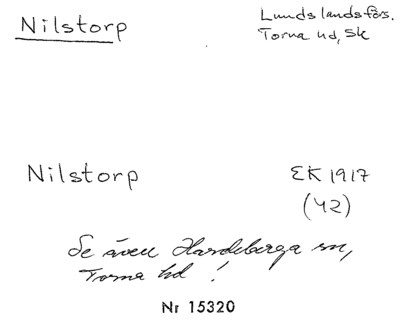 Nilstorp
Lunds landsförs.
Torna hd, Sk
Nilstorp
EK 1917
(42)
Se även Hardeberga sn,
Torna hd !
Nr 15320